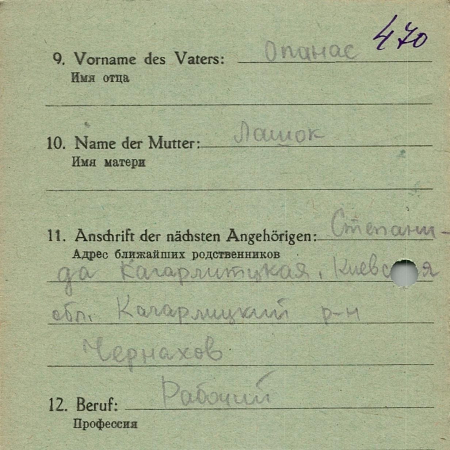 470
9. Vorname des Vaters: Опанас
Имя отца
10. Name der Mutter: Лашок
Имя матери
11. Anschrift der nächsten Angehörigen: Степани-
Адрес ближайших родственников
да Кагарлитцкая, Киевская
обл. Кагарлицкий р-н
Чернахов
12. Beruf: Рабочий
Профессия